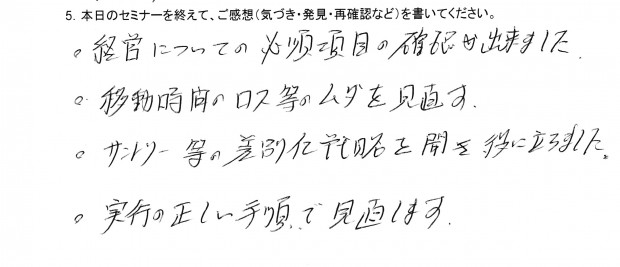 5. 本日のセミナーを終えて、ご感想(気づき・発見・再確認など)を書いてください。
。経営についての必須項目の確認が出来ました。
。移動時間のロス等のムダを見直す。
。サントリー等の差別化戦略を聞き役に立ちました。
。実行の正しい手順で見直します。